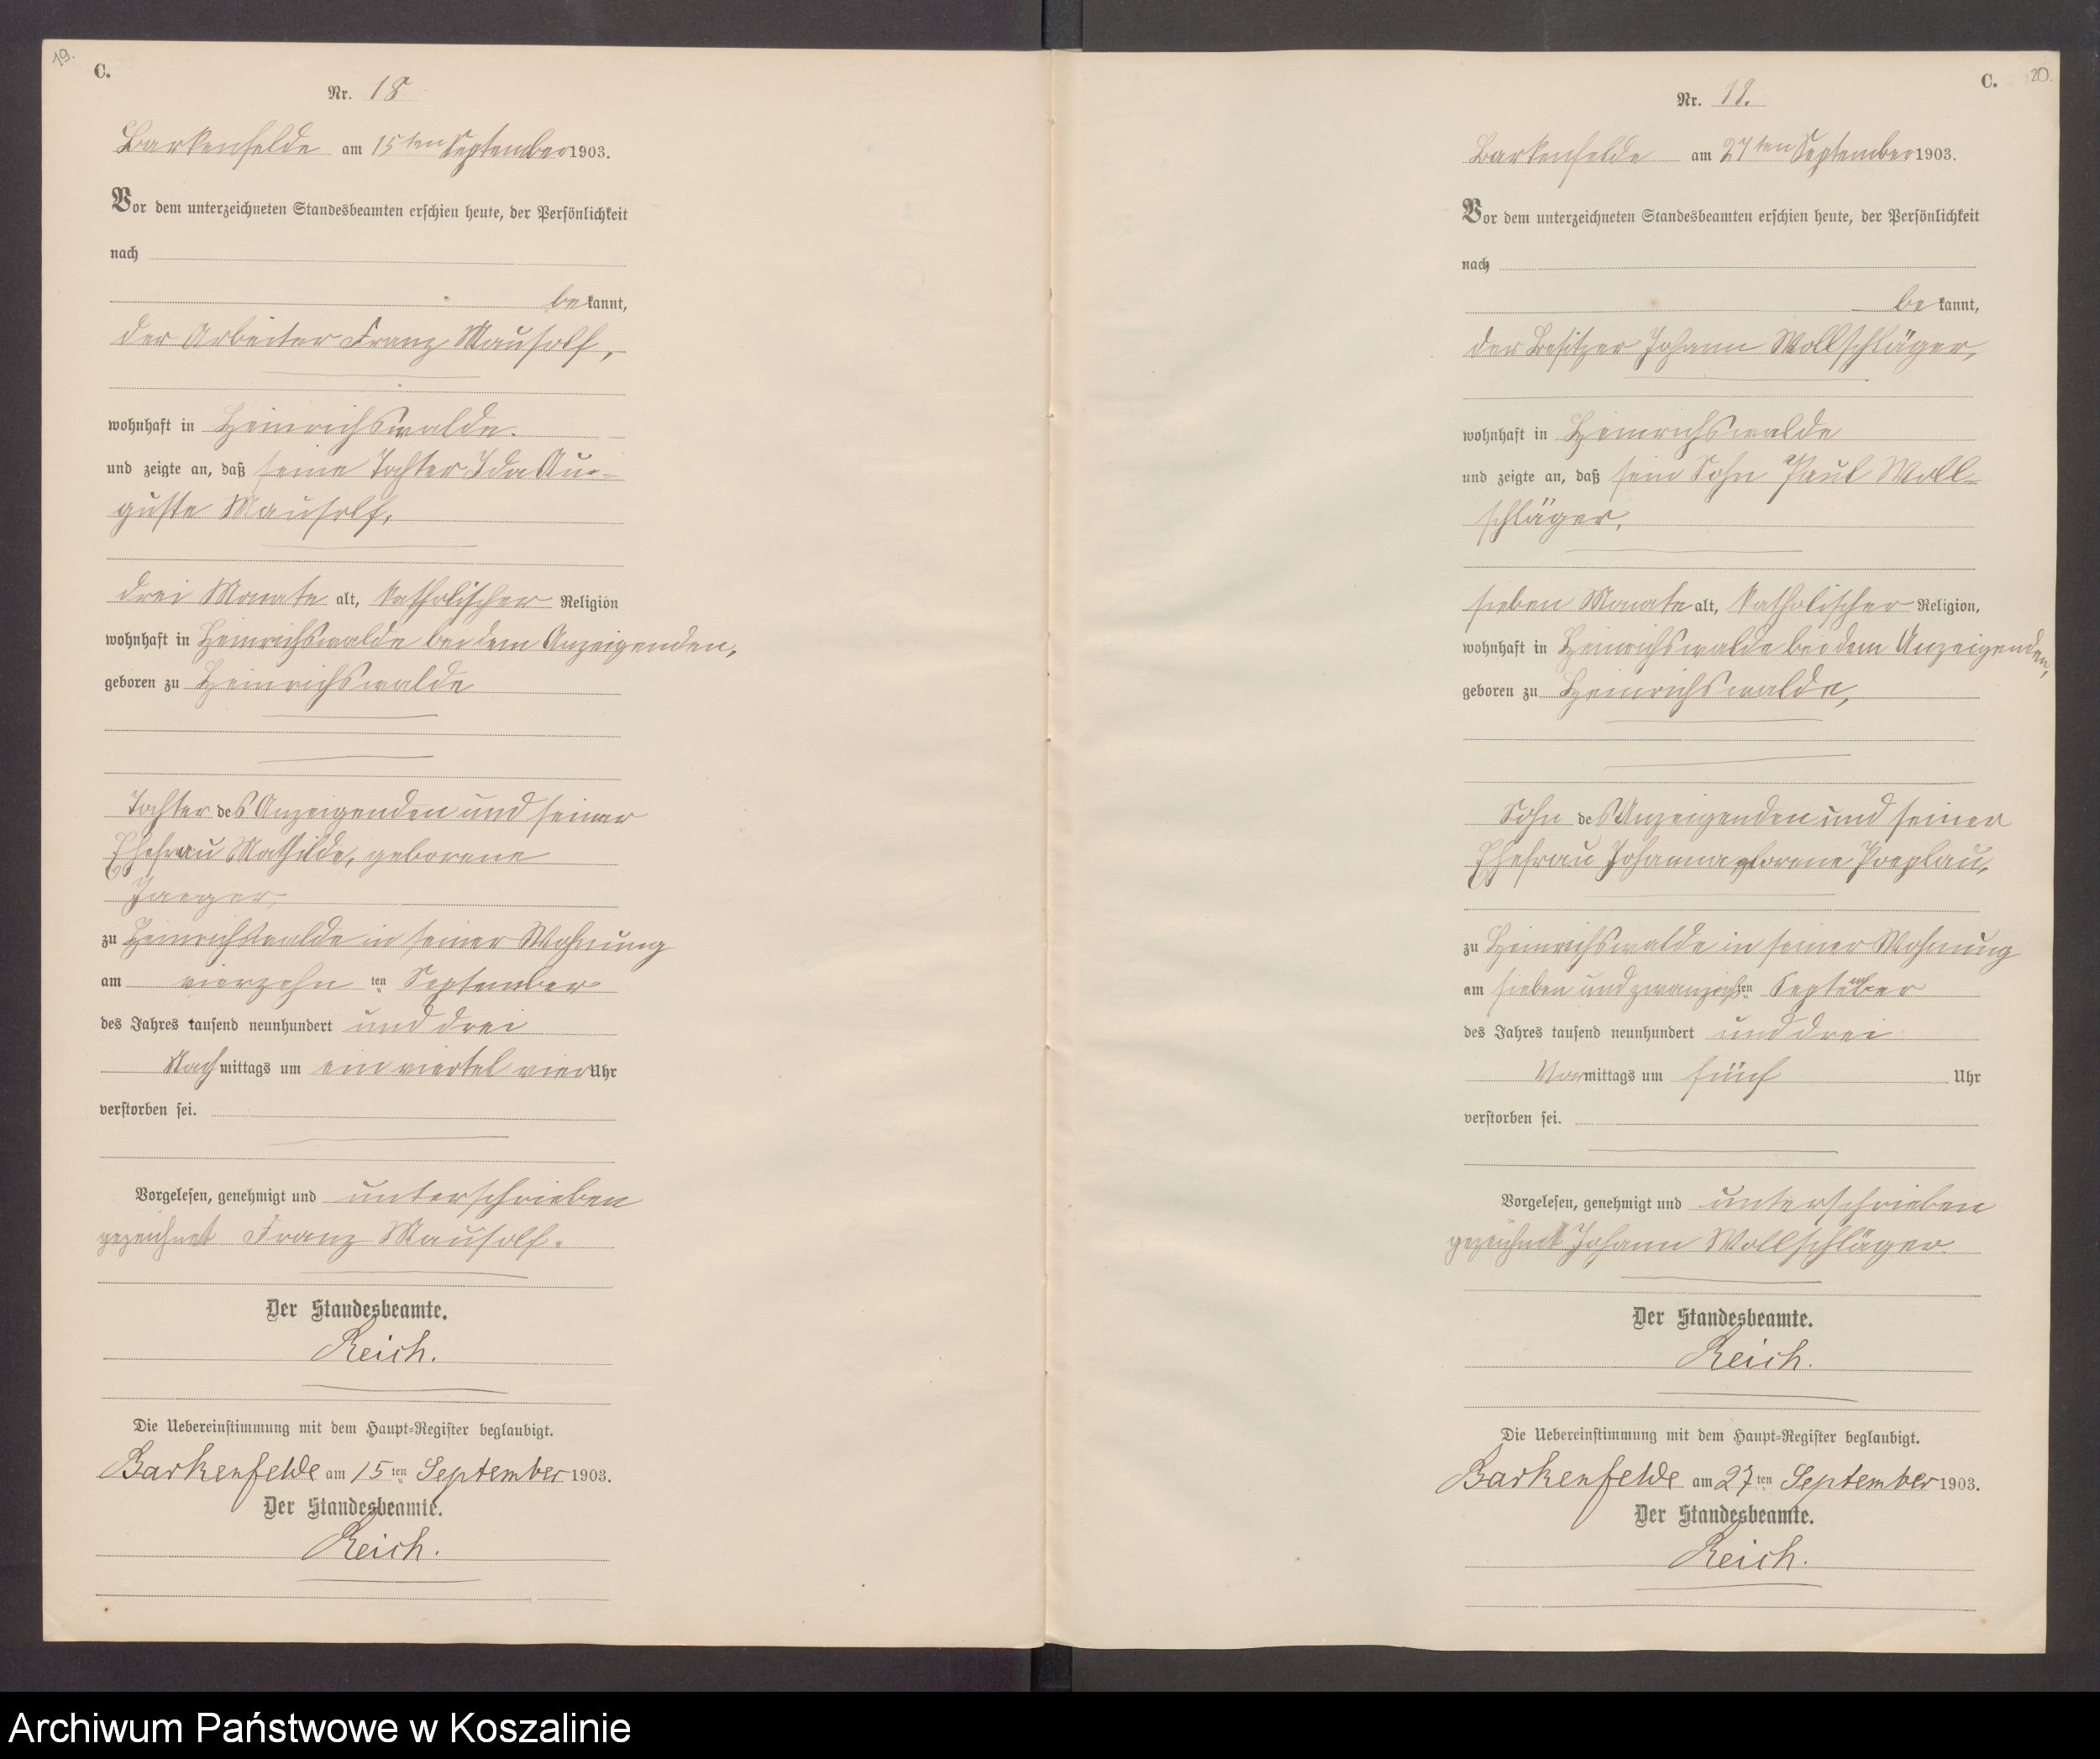 19.
C.
Nr. 18
Barkenfelde am 15ten September 1903.
Vor dem unterzeichneten Standesbeamten erschien heute, der Persönlichkeit
nach
be kannt,
der Arbeiter Franz Mausolf,
wohnhaft in Heinrichswalde.
und zeigte an, daß seine Tochter Ida Au-
guste Mausolf,
drei Monate alt, katholischer Religion
wohnhaft in Heinrichswalde bei dem Anzeigenden,
geboren zu Heinrichswalde
Tochter des Anzeigenden und seiner
Ehefrau Mathilde, geborene
Jaeger,
zu Heinrichswalde in seiner Wohnung
am vierzehn ten September
des Jahres tausend neunhundert und drei
Nachmittags um ein viertel vier Uhr
verstorben sei.
Vorgelesen, genehmigt und unterschrieben
gezeichnet Franz Mausolf.
Der Standesbeamte.
Reich.
Die Uebereinstimmung mit dem Haupt-Register beglaubigt.
Barkenfelde am 15ten September 1903.
Der Standesbeamte.
Reich.
C.
20.
Nr. 19.
Barkenfelde am 27ten September 1903.
Vor dem unterzeichneten Standesbeamten erschien heute, der Persönlichkeit
nach
be kannt,
der Besitzer Johann Wollschläger,
wohnhaft in Heinrichswalde
und zeigte an, daß sein Sohn Paul Woll-
schläger,
sieben Monate alt, katholischer Religion,
wohnhaft in Heinrichswalde bei dem Anzeigenden,
geboren zu Heinrichswalde,
Sohn des Anzeigenden und seiner
Ehefrau Johanna geborene
zu Heinrichswalde in seiner Wohnung
am sieben und zwanzigsten September
des Jahres tausend neunhundert und drei
Vormittags um fünf Uhr
verstorben sei.
Vorgelesen, genehmigt und unterschrieben
gezeichnet Johann Wollschläger.
Der Standesbeamte.
Reich.
Die Uebereinstimmung mit dem Haupt-Register beglaubigt.
Barkenfelde am 27ten September 1903.
Der Standesbeamte.
Reich.
Archiwum Państwowe w Koszalinie